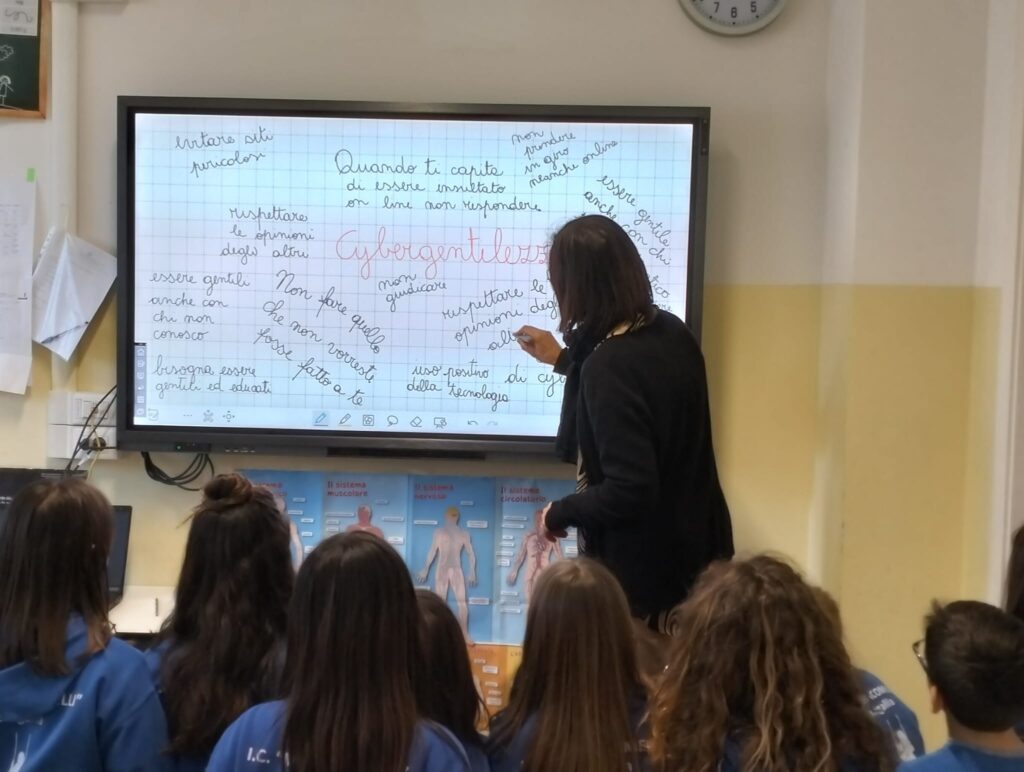 evitare siti
pericolosi
Quando ti capita
di essere insultato
on line non respondere
non
prendere
in giro
neanche online
essere gentile
anche con chi
rispettare
le opinioni
degli altri
Cybergentilezz
essere gentili
anche con
chi non
conosco
Non fare quello
che non vorreste
fosse fatto a te
non
giudicare
rispettare le
opinioni deg
alt
bisogna essere
gentili ed educati
uso positivo
della tecnologia
di cy
Il sistema
muscolare
Il sistema
nervoso
Il sistema
circolatorio
LU"
I.C.
7 6 5